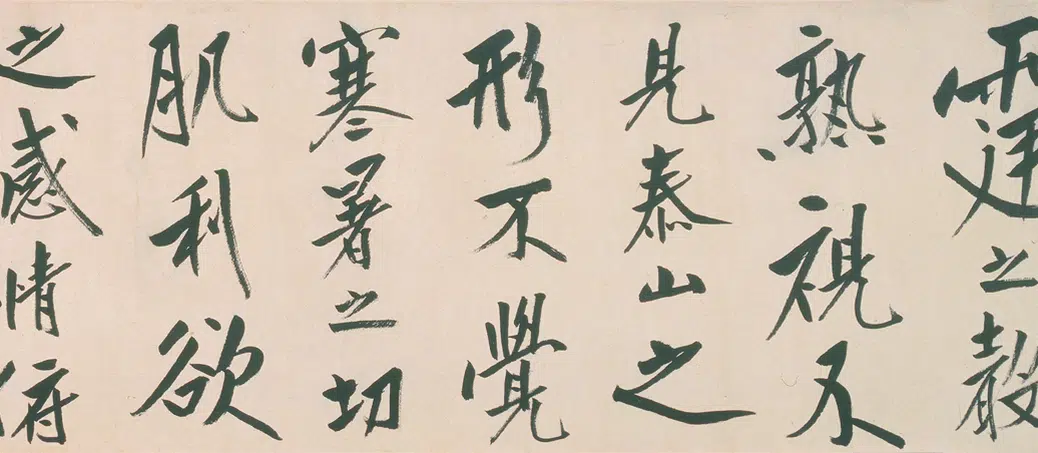 霆之聲
熟視不
見泰山之
形不覺
寒暑之切
肌利欲
之感情俯